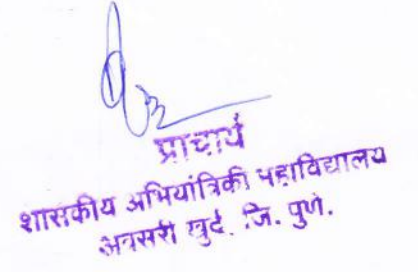 प्राचार्य
शासकीय अभियांत्रिकी महाविद्यालय
अवसरी खुर्द, जि. पुणे.